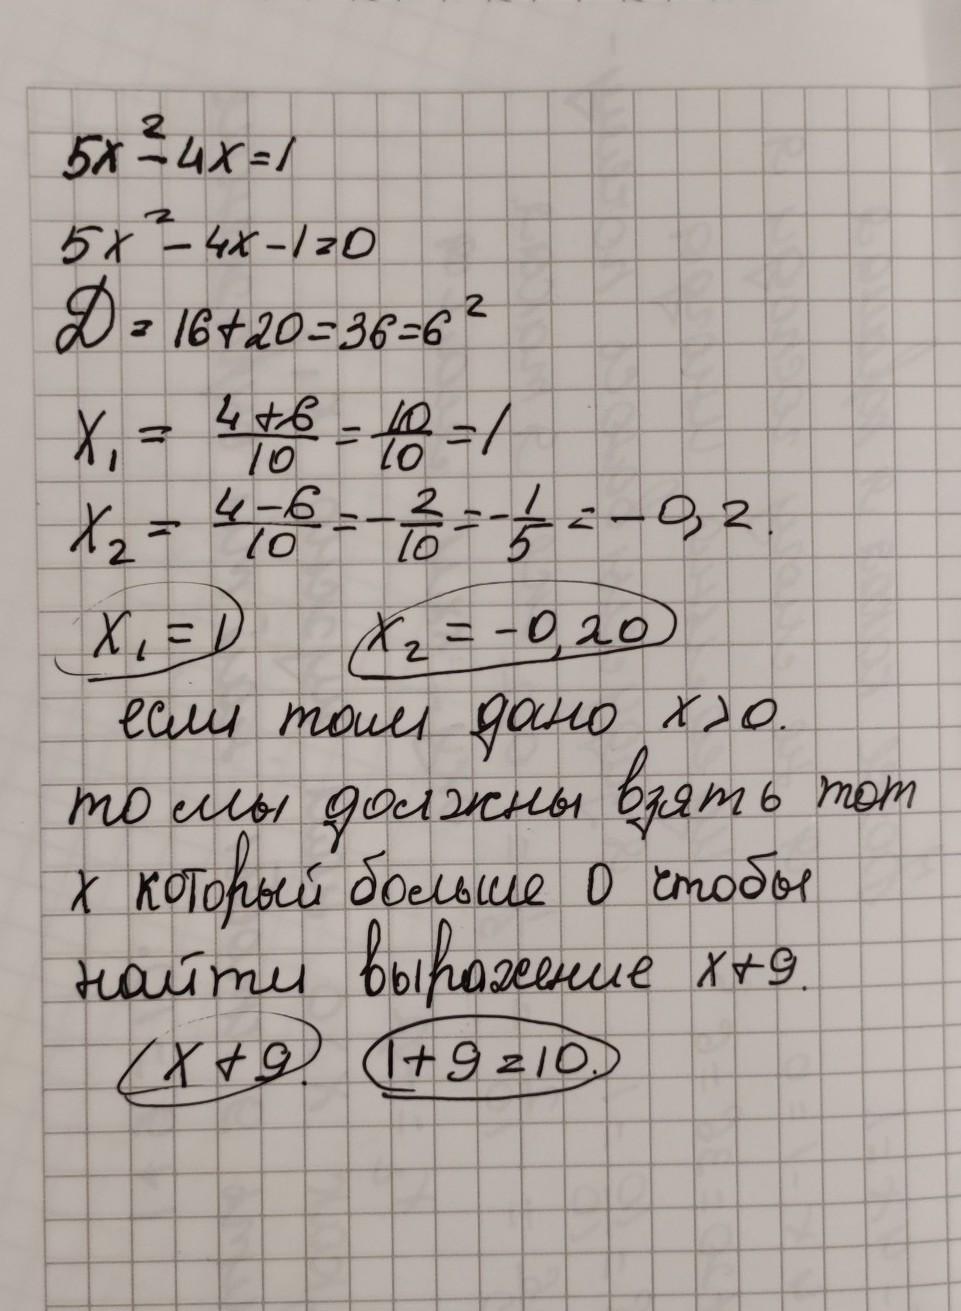 5x² - 4x = 1
5x² - 4x - 1 = 0
D = 16 + 20 = 36 = 6²
x₁ = (4+6)/10 = 10/10 = 1
x₂ = (4-6)/10 = -2/10 = -1/5 = -0,2.
x₁ = 1 x₂ = -0,20
если там дано x > 0.
то мы должны взять тот
x который больше 0 чтобы
найти выражение x+9.
x + 9. 1 + 9 = 10.